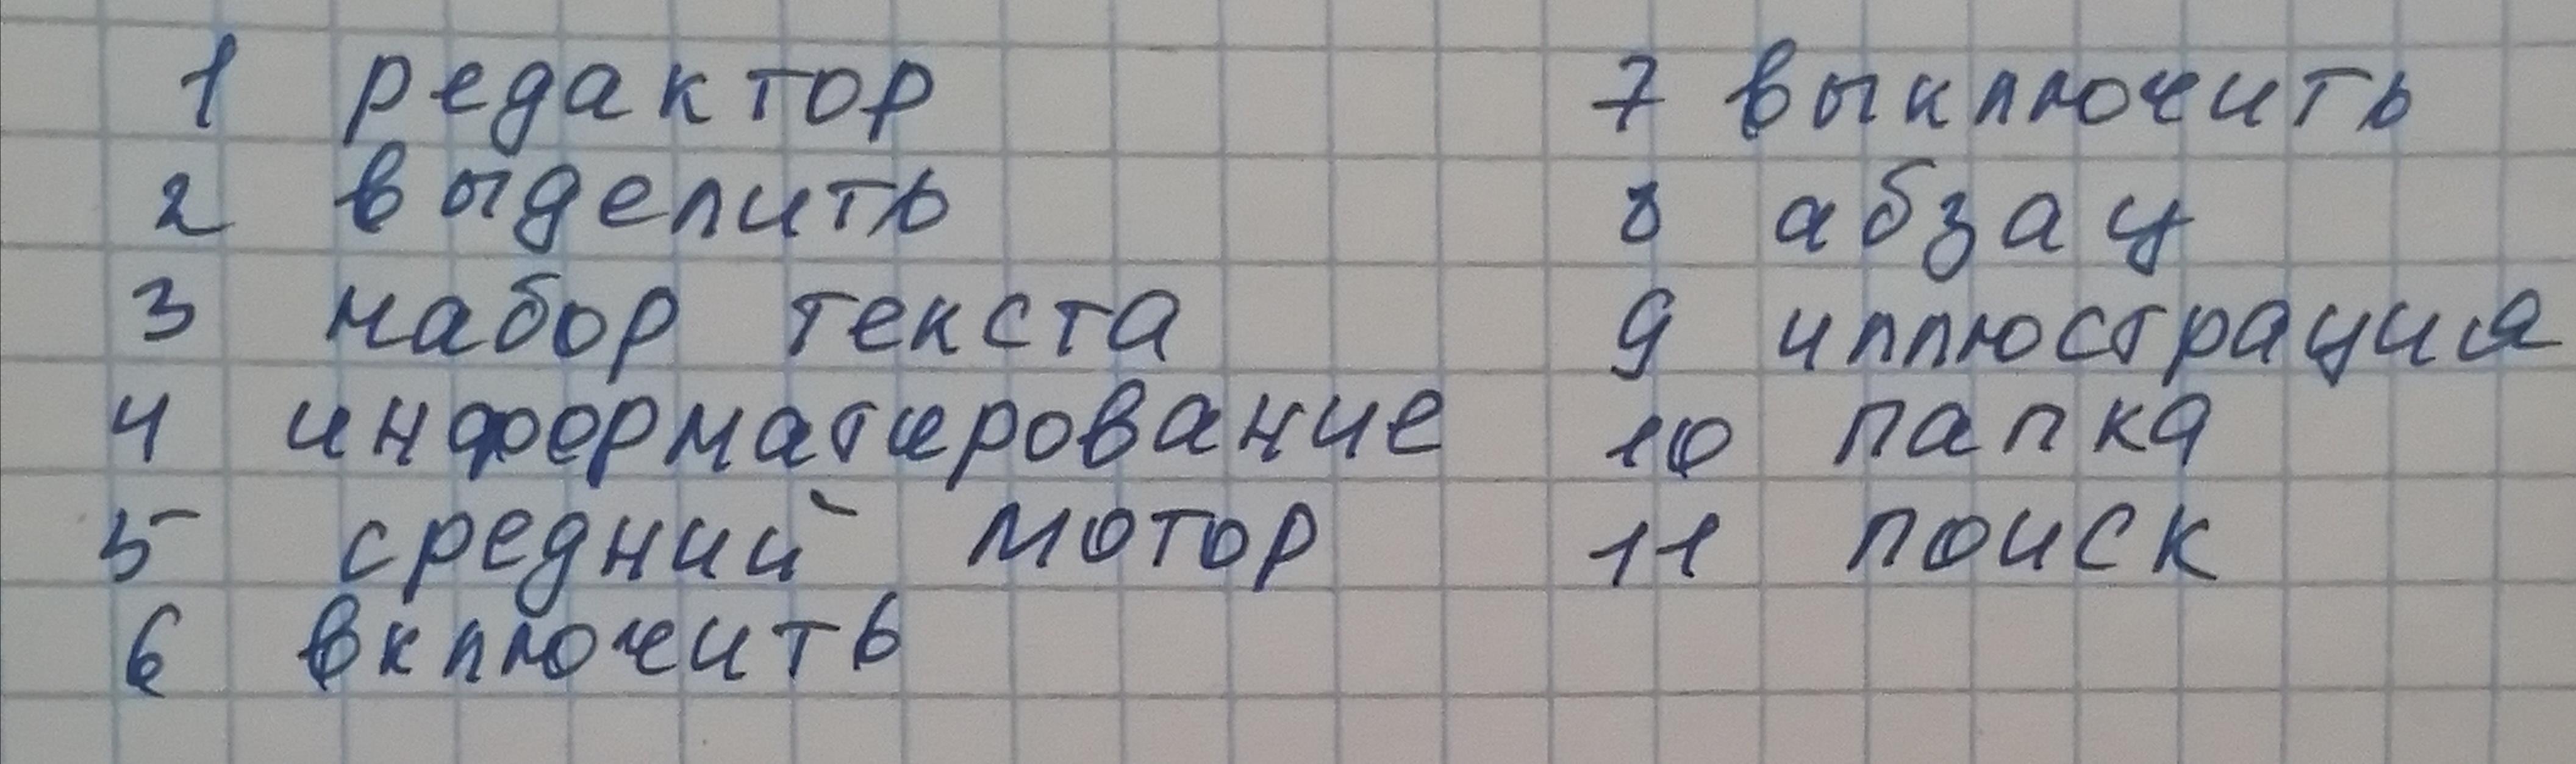 1 редактор
2 выделить
3 набор текста
4 информатирование
5 средний мотор
6 включить
7 выключить
8 абзац
9 иллюстрация
10 папка
11 поиск